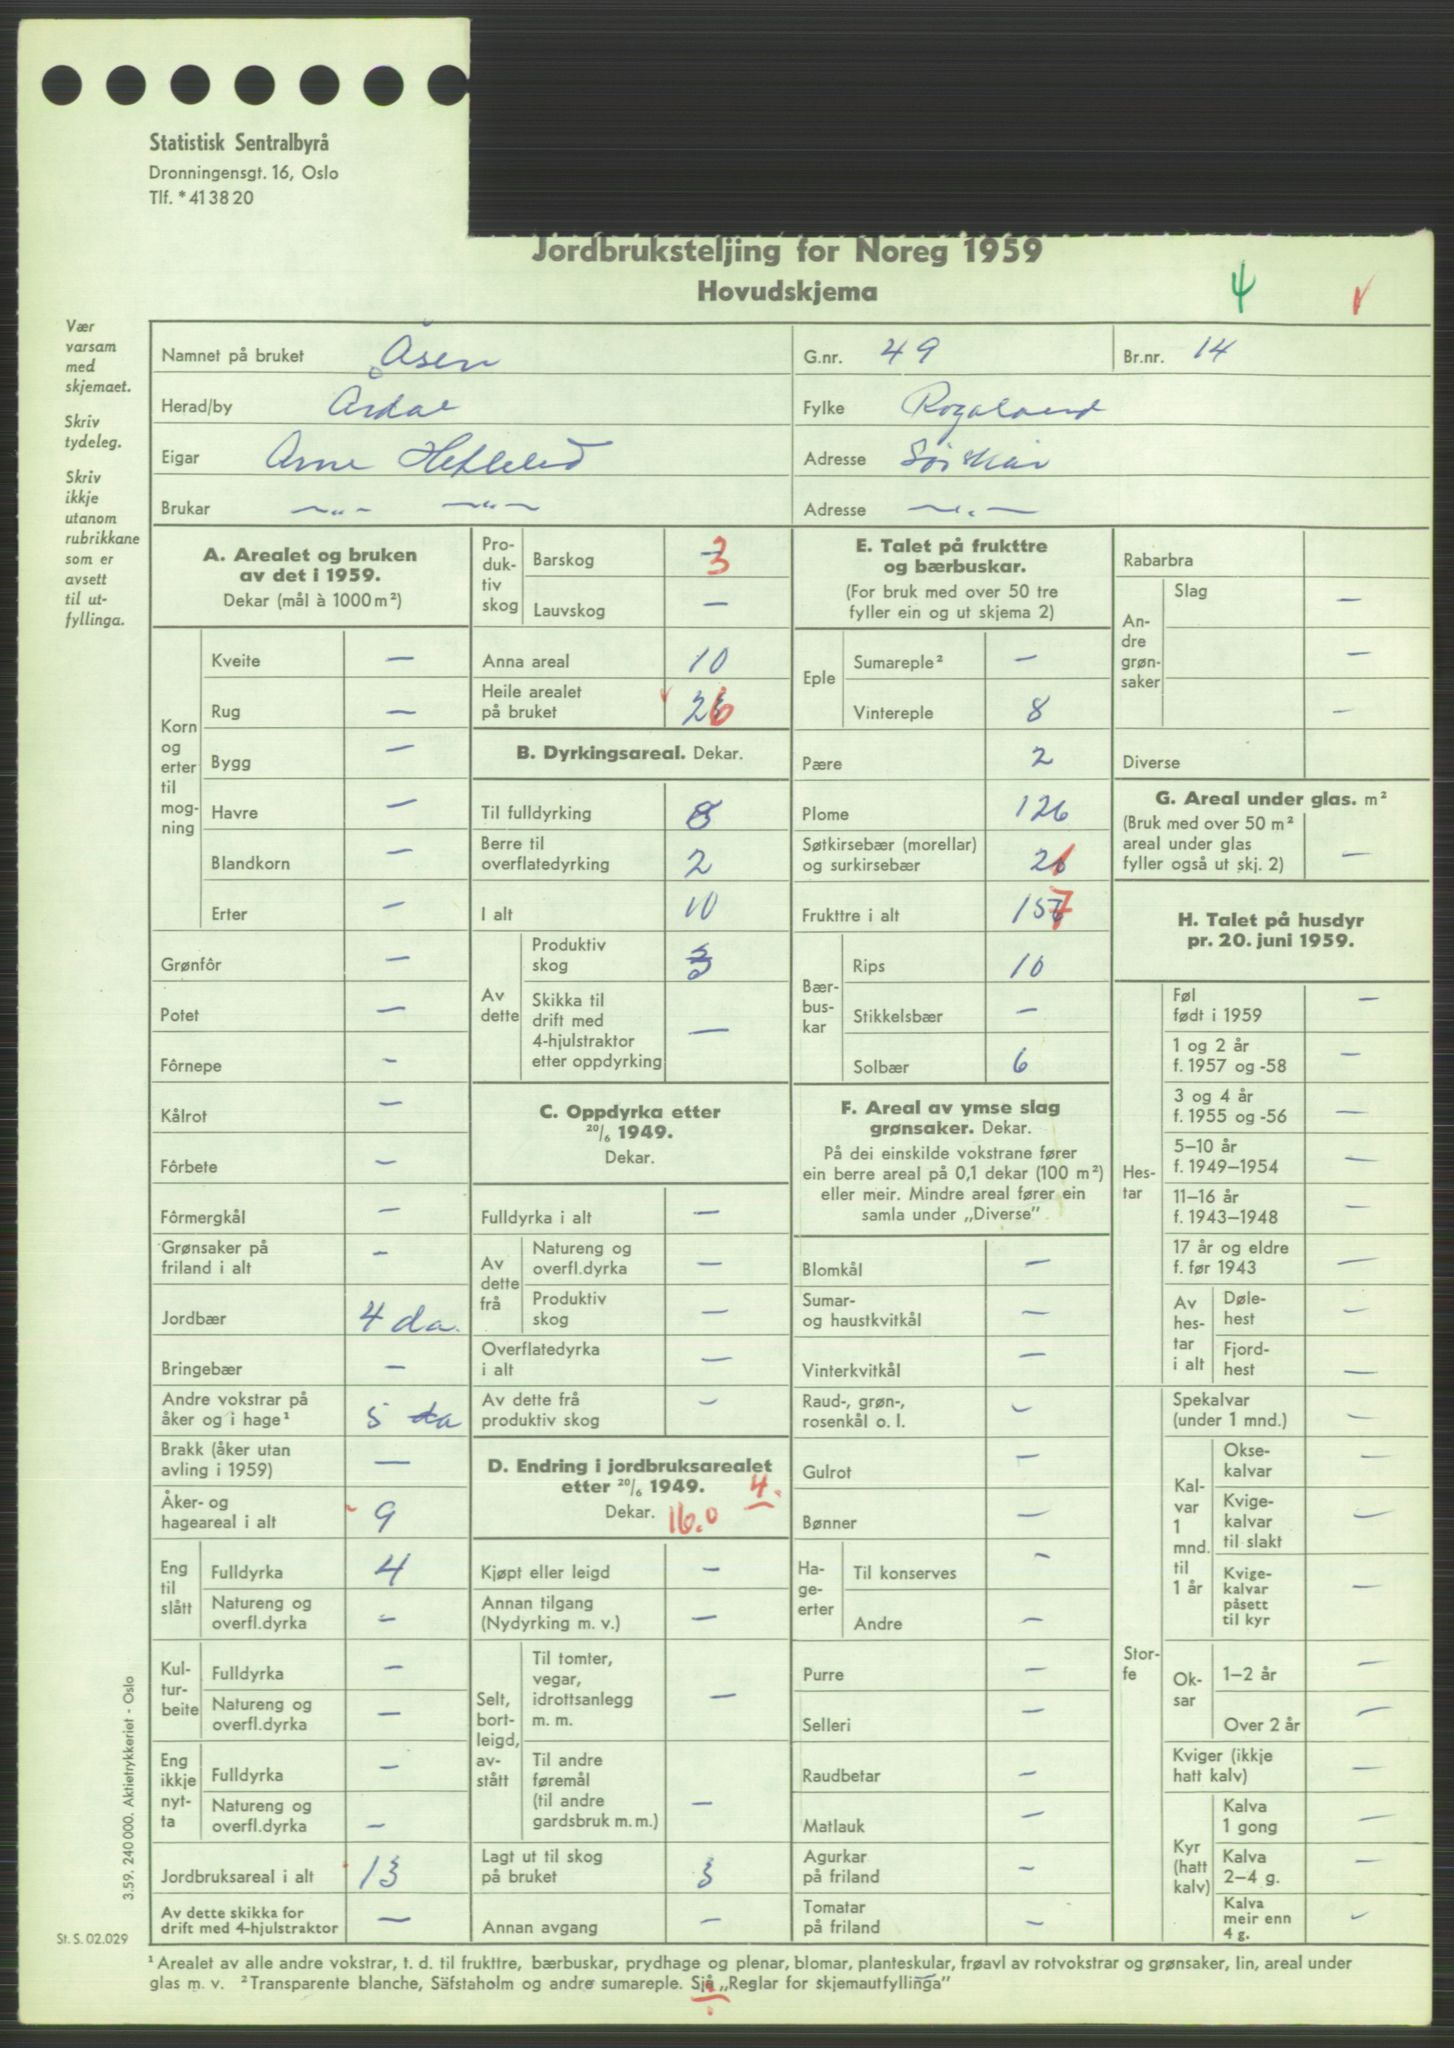 Statistisk Sentralbyrå
Dronningensgt. 16, Oslo
Tlf. * 41 38 20
Jordbruksteljing for Noreg 1959
Hovudskjema
4
Vær
varsam
med
skjemaet.
Skriv
tydeleg.
Skriv
ikkje
utanom
rubrikkane
som er
avsett
til ut-
fyllinga.
Namnet på bruket Åsen G.nr. 49 Br.nr. 14
Herad/by Årdal Fylke Rogaland
Eigar Arne Adresse
Brukar — " — — " — Adresse — " —
A. Arealet og bruken
av det i 1959.
Dekar (mål à 1000 m²)
Korn og erter til mog-ning
Kveite —
Rug —
Bygg —
Havre —
Blandkorn —
Erter —
Grønfôr —
Potet —
Fôrnepe —
Kålrot —
Fôrbete —
Fôrmergkål —
Grønsaker på
friland i alt —
Jordbær 4 da.
Bringebær —
Andre vokstrar på
åker og i hage¹ 5 da
Brakk (åker utan
avling i 1959) —
Åker- og
hageareal i alt 9
Eng til slått
Fulldyrka 4
Natureng og
overfl.dyrka —
Kul-tur-beite
Fulldyrka —
Natureng og
overfl.dyrka —
Eng ikkje nyt-ta
Fulldyrka —
Natureng og
overfl.dyrka —
Jordbruksareal i alt 13
Av dette skikka for
drift med 4-hjulstraktor —
Pro-duk-tiv skog
Barskog 3
Lauvskog —
Anna areal 10
Heile arealet
på bruket 26
B. Dyrkingsareal. Dekar.
Til fulldyrking 8
Berre til
overflatedyrking 2
I alt 10
Av dette
Produktiv
skog 3
Skikka til
drift med
4-hjulstraktor
etter oppdyrking —
C. Oppdyrka etter
20/6 1949.
Dekar.
Fulldyrka i alt —
Av dette frå
Natureng og
overfl.dyrka —
Produktiv
skog —
Overflatedyrka
i alt —
Av dette frå
produktiv skog —
D. Endring i jordbruksarealet
etter 20/6 1949. 4.
Dekar. 16.0
Kjøpt eller leigd —
Annan tilgang
(Nydyrking m. v.) —
Selt, bort-leigd, av-stått
Til tomter,
vegar,
idrottsanlegg
m. m. —
Til andre
føremål
(til andre
gardsbruk m. m.) —
Lagt ut til skog
på bruket 3
Annan avgang —
E. Talet på frukttre
og bærbuskar.
(For bruk med over 50 tre
fyller ein og ut skjema 2)
Eple
Sumareple² —
Vintereple 8
Pære 2
Plome 126
Søtkirsebær (morellar)
og surkirsebær 21
Frukttre i alt 157
Bær-bus-kar
Rips 10
Stikkelsbær —
Solbær 6
F. Areal av ymse slag
grønsaker. Dekar.
På dei einskilde vokstrane fører
ein berre areal på 0,1 dekar (100 m²)
eller meir. Mindre areal fører ein
samla under „Diverse”
Blomkål —
Sumar-
og haustkvitkål —
Vinterkvitkål —
Raud-, grøn-,
rosenkål o. l. —
Gulrot —
Bønner —
Ha-ge-erter
Til konserves —
Andre —
Purre —
Selleri —
Raudbetar —
Matlauk —
Agurkar
på friland —
Tomatar
på friland —
Rabarbra
An-dre grøn-saker
Slag —
—
—
Diverse
G. Areal under glas. m²
(Bruk med over 50 m²
areal under glas
fyller også ut skj. 2) —
H. Talet på husdyr
pr. 20. juni 1959.
Hes-tar
Føl
født i 1959 —
1 og 2 år
f. 1957 og -58 —
3 og 4 år
f. 1955 og -56 —
5–10 år
f. 1949–1954 —
11–16 år
f. 1943–1948 —
17 år og eldre
f. før 1943 —
Av hes-tar i alt
Døle-
hest —
Fjord-
hest —
Stor-fe
Spekalvar
(under 1 mnd.) —
Kal-var 1 mnd. til 1 år
Okse-
kalvar
Kvige-
kalvar
til slakt —
Kvige-
kalvar
påsett
til kyr —
Ok-sar
1–2 år —
Over 2 år —
Kviger (ikkje
hatt kalv) —
Kyr (hatt kalv)
Kalva
1 gong —
Kalva
2–4 g. —
Kalva
meir enn
4 g. —
3.59. 240 000. Aktietrykkeriet - Oslo
St. S. 02.029
¹ Arealet av alle andre vokstrar, t. d. til frukttre, bærbuskar, prydhage og plenar, blomar, planteskular, frøavl av rotvokstrar og grønsaker, lin, areal under
glas m. v. ² Transparente blanche, Säfstaholm og andre sumareple. Sjå „Reglar for skjemautfyllinga”